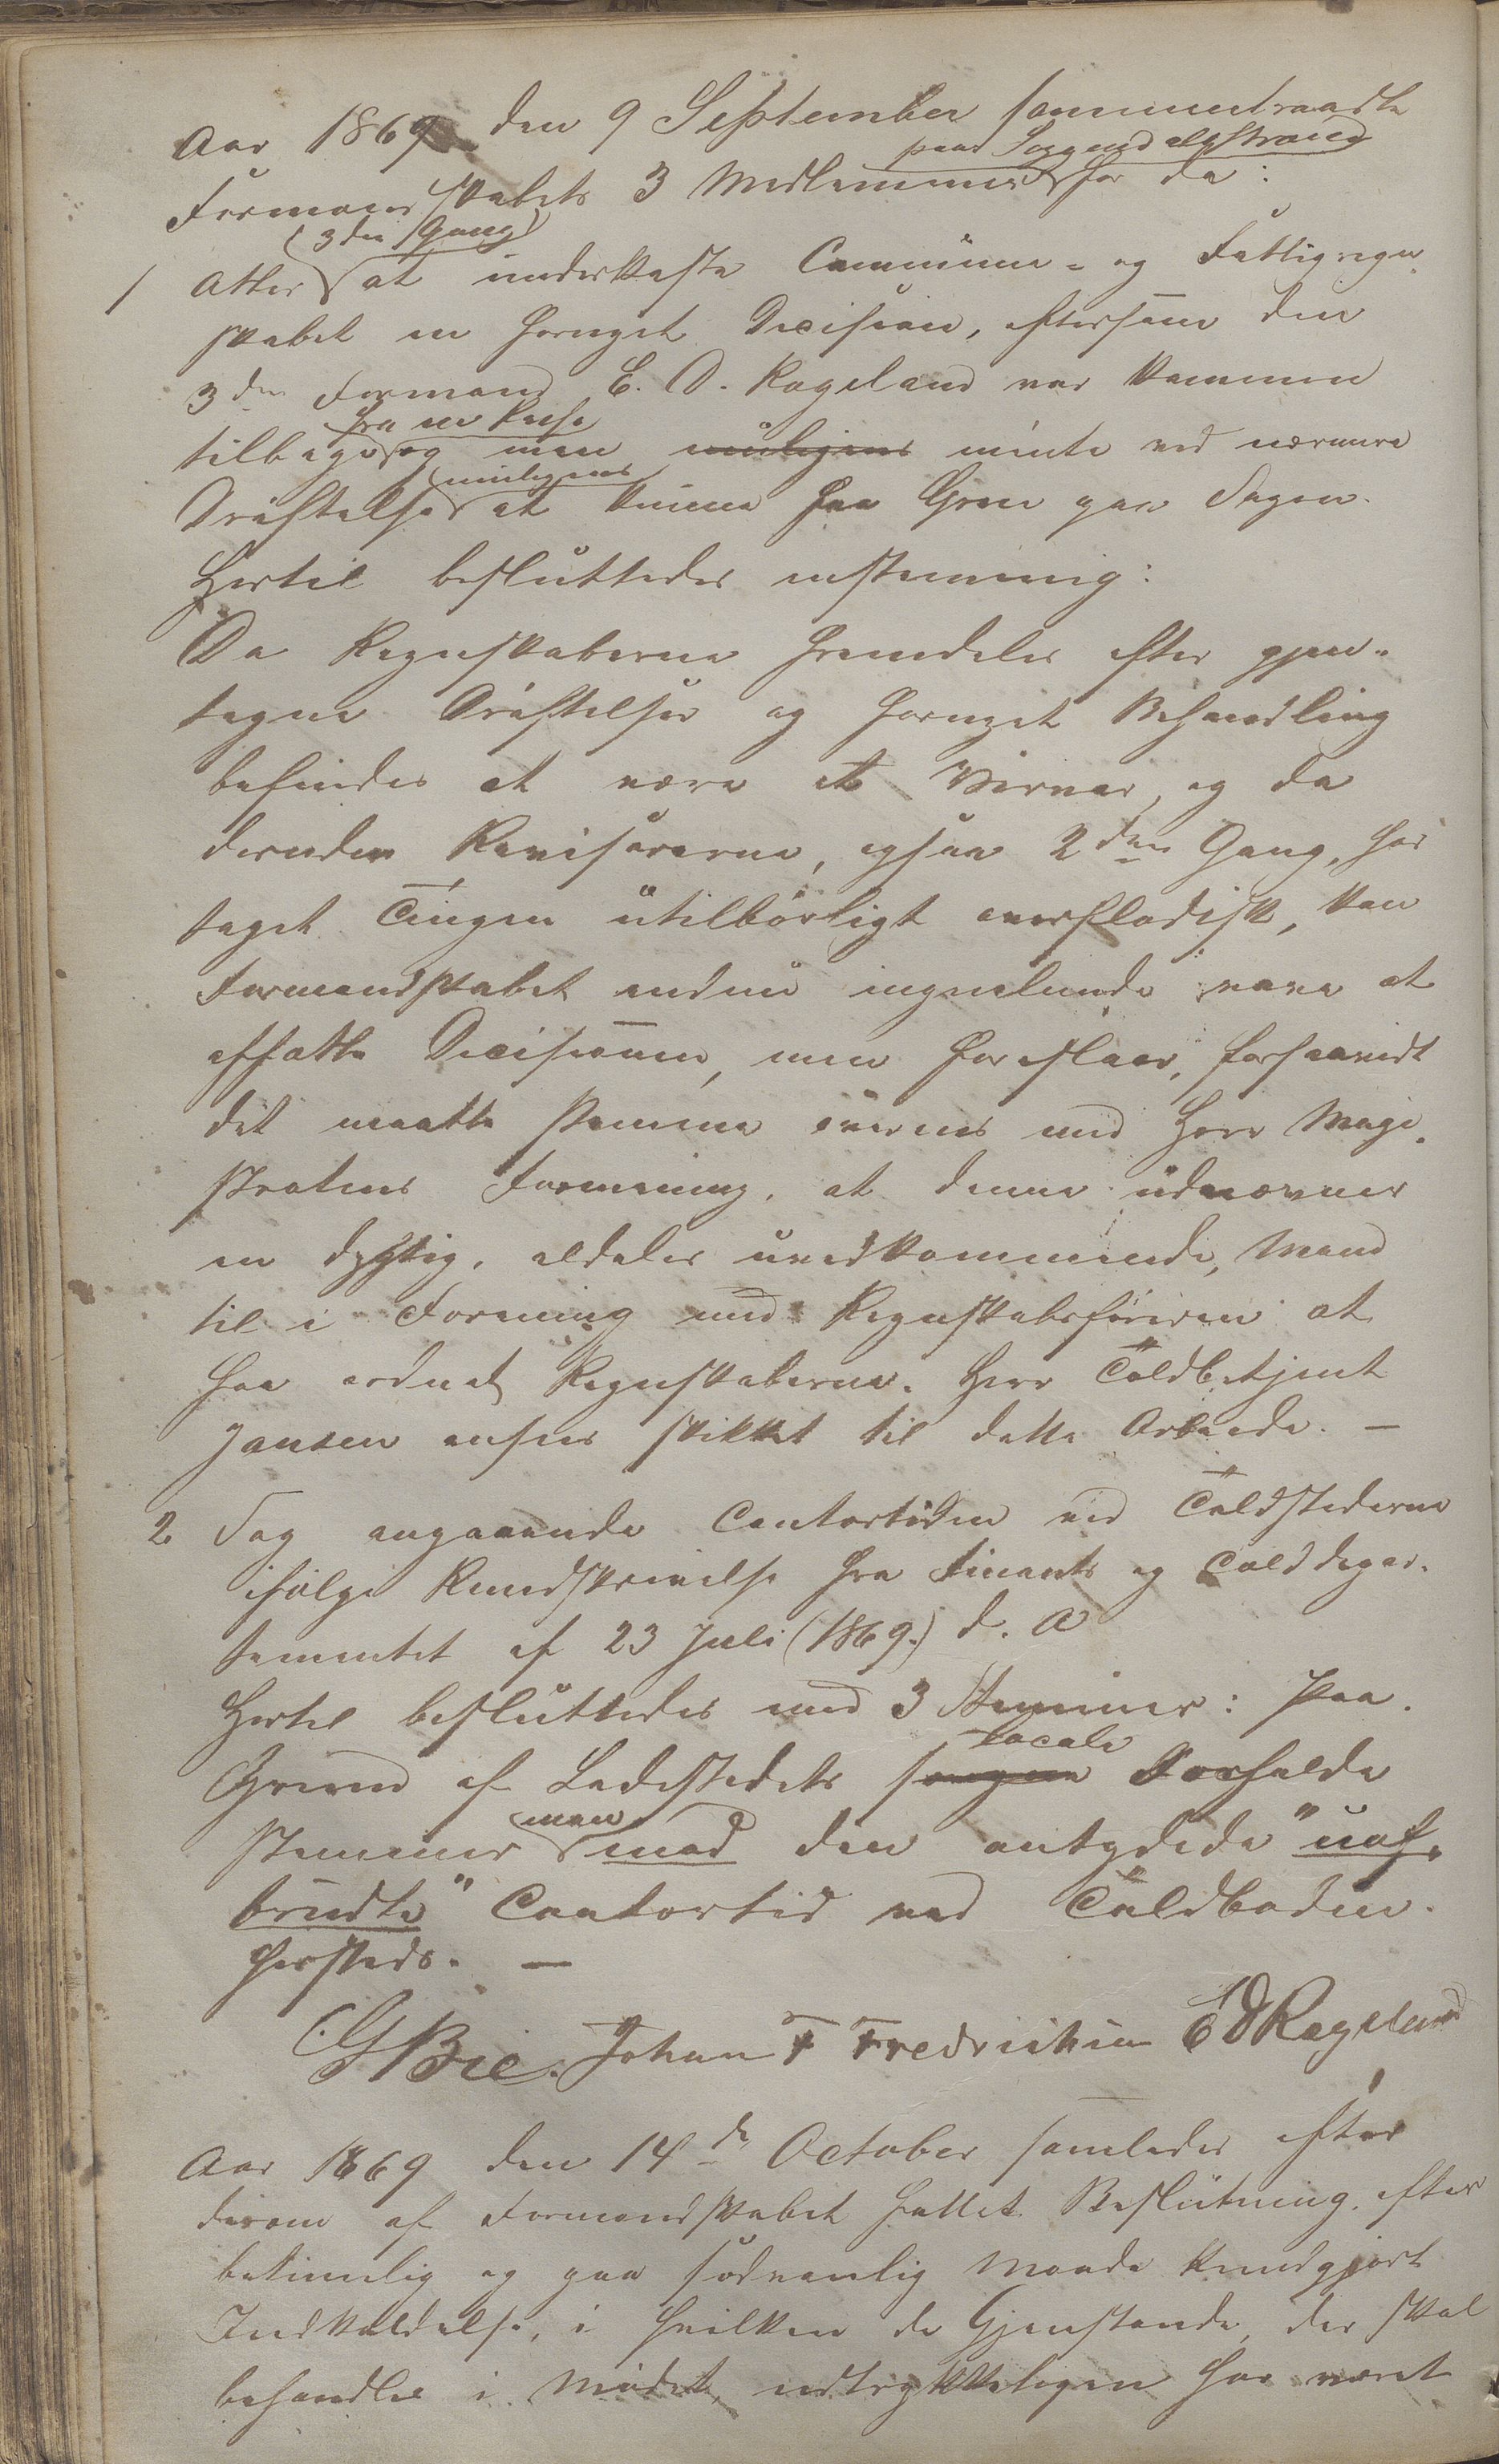 Aar 1869 den 9 September sammentraadte
paa Soggendalsstrand
Formandskabets 3 Medlemmer for da:
3die Gang
1 Atter at underkaste Commune- og Fattigregn-
skabet en fornyet Decision, eftersom den
3die Formand E. O. Rageland var kommen
fra en Reise
tilbage og man muligens mente ved nærmere
muligens
Drøftelse at kunne faa Greie paa Sagen.
Hertil besluttedes enstemmig:
Da Regnskaberne fremdeles efter gjen-
tagne Drøftelser og fornyet Behandling
befindes at være et Virvar, og da
desuden Revisorerne, ogsaa 2den Gang, har
taget Tingen utilbørligt overfladisk, kan
Formandskabet endnu ingenlunde vove at
affatte Decisionen, men foreslaar, forsaavidt
det maatte stemme overens med Herr Magi-
stratens Formening, at denne udnævner
en dygtig, aldeles uvedkommende, Mand
til i Forening med Regnskabsføreren at
faa ordnet Regnskaberne. Herr Toldbetjent
Jansen ansees skikket til dette Arbeide. —
2 Sag angaaende Contortiden ved Toldstederne
ifølge Rundskrivelse fra Finants og Tolddepar-
tementet af 23 Juli (1869.) d. A
Hertil besluttedes med 3 Stemmer: Paa
locale
Grund af Ladestedets Forholde
man
stemmer mod den antydede "uaf-
brudte" Contortid ved Toldboden
hersteds. —
C. G Bie. Johan F Fredriksen E O Rageland
Aar 1869 den 14de October samledes efter
derom af Formandskabet fattet Beslutning, efter
betimelig og paa sedvanlig Maade kundgjort
Indkaldelse, i hvilken de Gjenstande, der skal
behandles i Mødet, udtrykkeligen har været